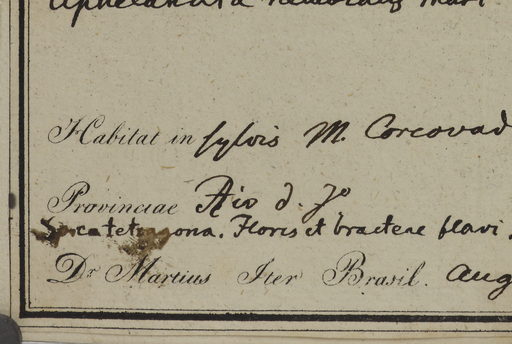 Aphelandra nemoralis Mart
Habitat in sylvis M. Corcovad
Provinciae Rio d. Jo
tetragona. Flores et bracteae flavi.
Dr Martius Iter Brasil. Aug